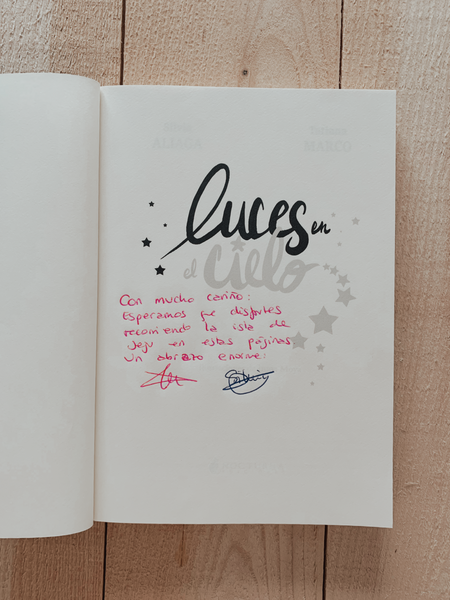 luces en
el cielo
Con mucho cariño:
Esperamos que disfrutes
recorriendo la isla de
Jeju en estas páginas
Un abrazo enorme: